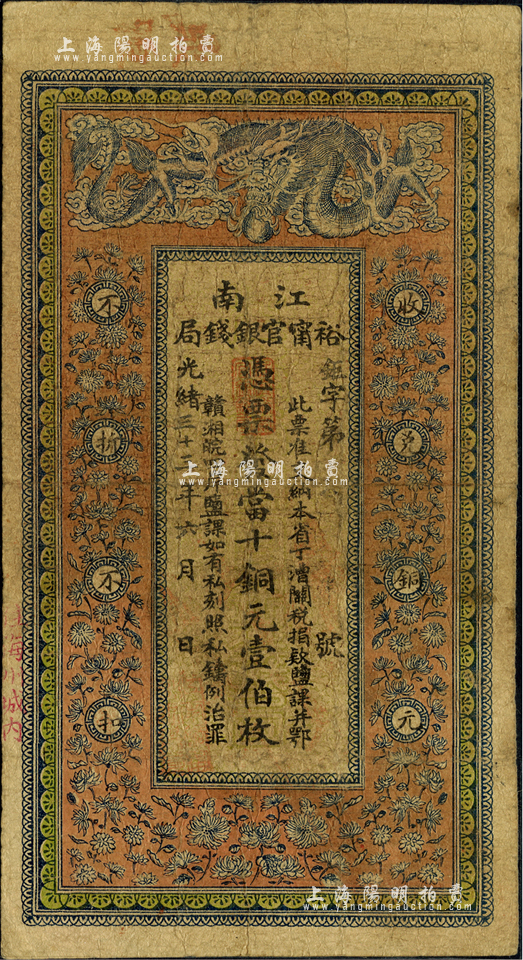 上海陽明拍賣
www.yangmingauction.com
江南
裕甯官銀錢局
字第
號
此票准
納本省丁漕關稅捐款鹽課幷鄂
贛湘皖
鹽課如有私刻照私鑄例治罪
憑票
當十銅元壹佰枚
光緒三十
年六月
日
收兌銅元
不折不扣
上海陽明拍賣
www.yangmingauction.com
上海
城內
上海陽明拍賣
www.yangmingauction.com